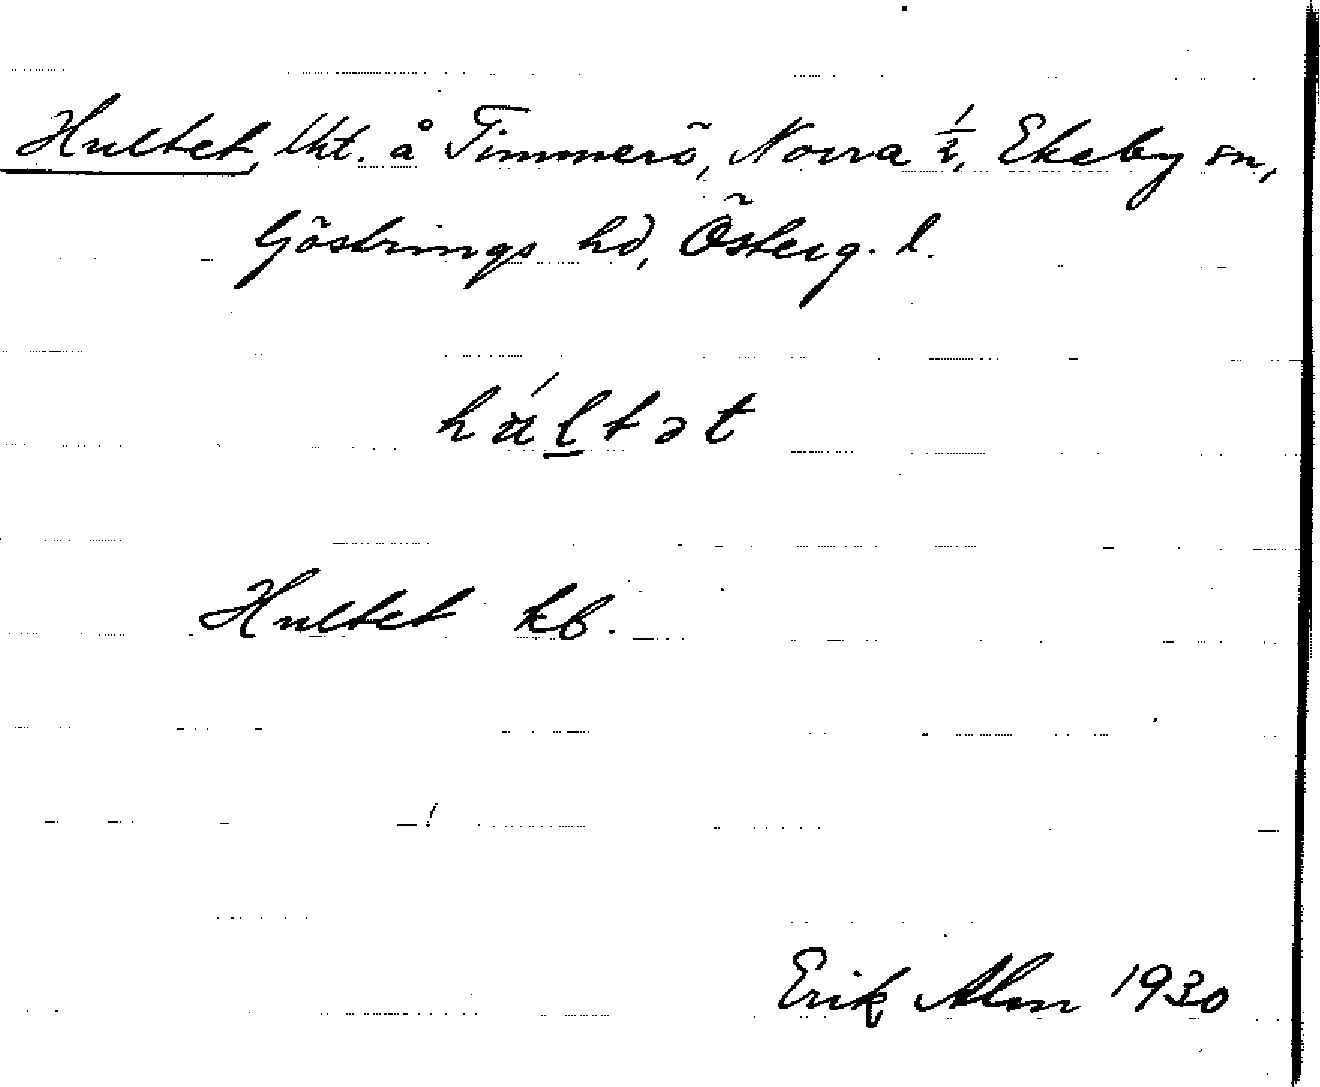 Hultet, lht. å Timmerö, Norra ½, Ekeby sn,
Göstrings hd, Österg. l.
húltət
Hultet kb.
Erik Alm 1930